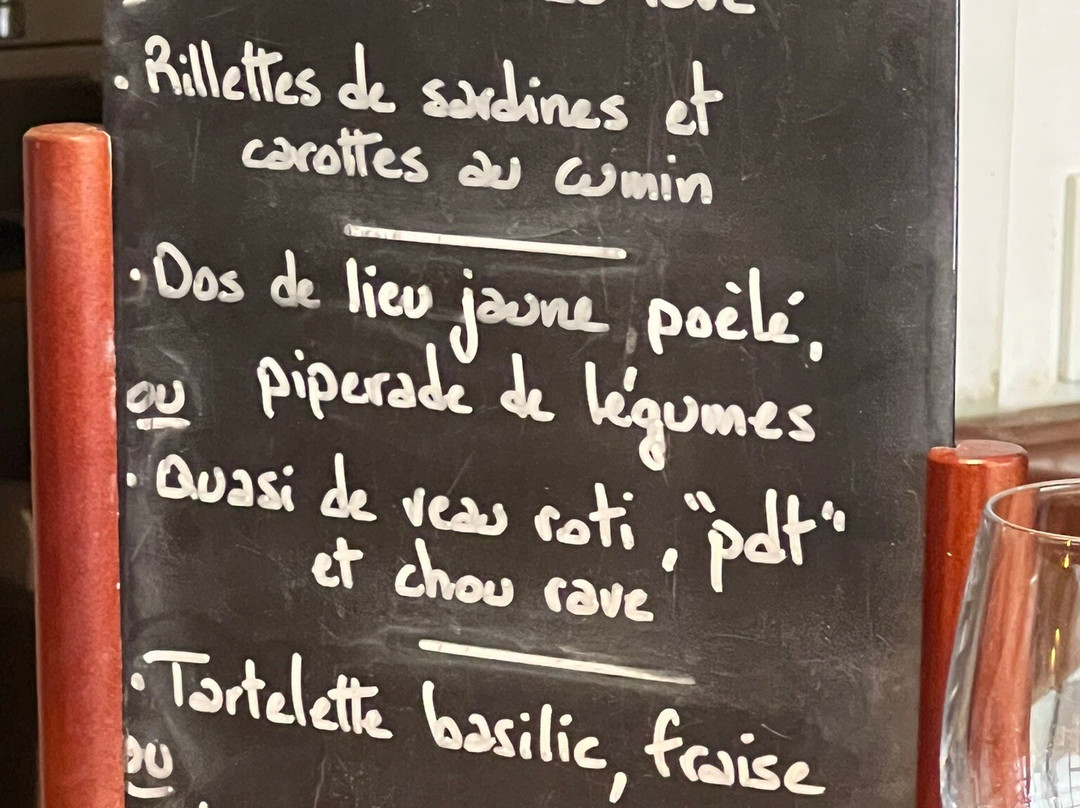 · Rillettes de sardines et
carottes au cumin
· Dos de lieu jaune poèlé,
ou piperade de légumes
· Quasi de veau roti, "pdt"
et chou rave
· Tartelette basilic, fraise
ou